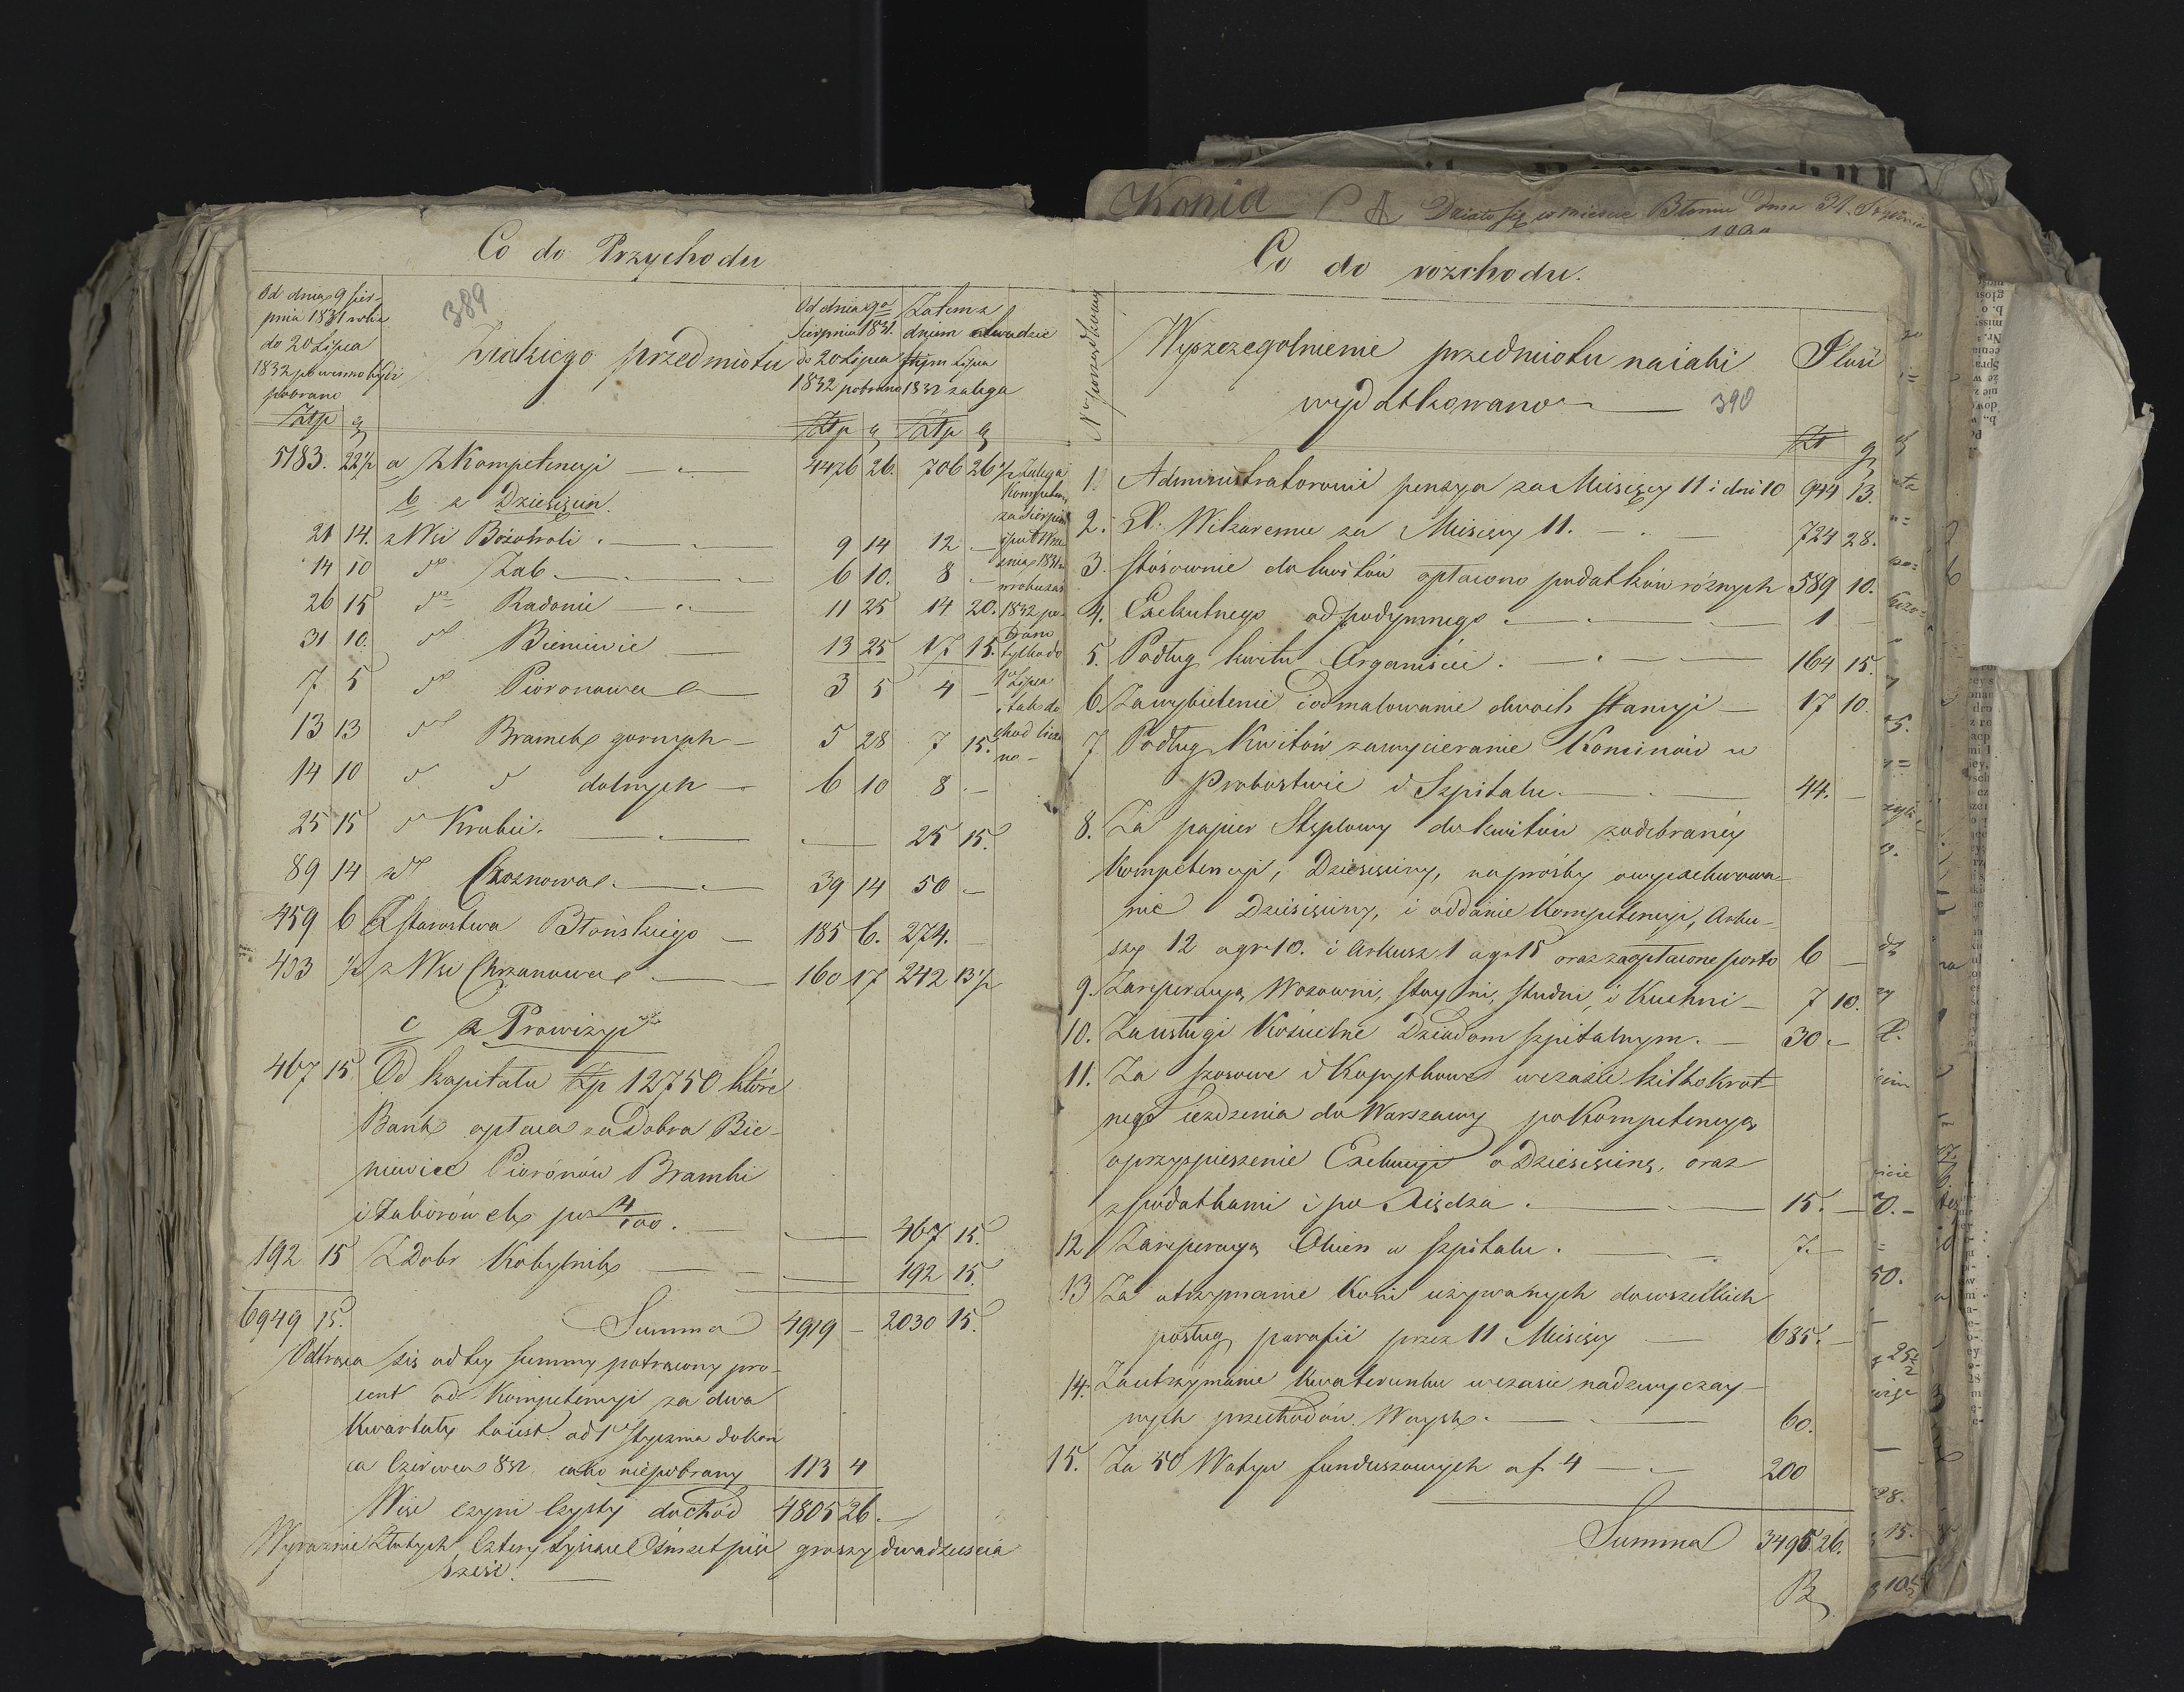 Kopia
Działo się w mieście Błoniu dnia 31. Stycznia
Co do Przychodu
Od dnia 9 Sier-
pnia 1831 roku
do 20 Lipca
1832 powinno bydź
pobrano
389
Z iakiego przedmiotu
Od dnia 9go
Sierpnia 1831.
do 20 Lipca
1832 pobrano
Zatem z
dniem
Lipca
1832 zalega
Złtp g Złtp g Złtp g
5183. 22½ a Z Kompetencyi 4476 26. 706 26½
b z Dziesięcin.
21 14. z Wsi Bożowoli 9 14 12 —
14 10 do Żab 6 10. 8 —
26 15 do Radonic 11 25 14 20.
31 10. do Bieniewic 13 25 17 15.
7 5 do Pioronowa 3 5 4 —
13 13 do Bramek gornych 5 28 7 15.
14 10 do do dolnych 6 10 8 —
25 15 do Krubic. — 25 15.
89 14 z do Czosnowa. 39 14 50 —
459 6 Z Starostwa Błońskiego 185 6. 274. —
403 ½ z Wsi Chrzanowa 160 17 242 13½
Zalega
Kompeten.
za Sierpień
i puł Wrze
śnia 1831
1832 po-
brano
tylko do
1 Lipca
i tak do
chod liczo
no —
c z Prowizyi
467 15. Od kapitału Złp 12750 które
Bank opłaca za Dobra Bie-
niewice Pioronów Bramki
i Zaborówek po 4/100. — 467 15.
192 15 Z Dobr Kobylnik — 192 15.
6949 15. Summa 4919 — 2030 15.
Odtrąca się od tey summy potrącony pro-
cent od Kompetencyi za dwa
Kwartały to iest. od 1 Stycznia do koń
ca Czerwca 832. iako niepobrany 113 4
Więc czyni czysty dochód 4805 26. —
Wyraznie Złotych Cztery tysiące Ośmset pięć groszy dwadzieścia
sześć.
Co do rozchodu.
Nr porządkowy
Wyszczegolnienie przedmiotu na iaki
wydatkowano 390
Ilość
Zł g
1. Administratorowi pensya za Miesięcy 11 i dni 10 944 13.
2. Wikaremu za Miesięcy 11. 724 28.
3. Stósownie do kwitów opłacono podatków różnych 589 10.
4. Exekutnego od podymnego 1 —
5. Podług kwitu Organiście. 164 15.
6. Za wybielenie i odmalowanie dwoch stancyi 17 10.
7 Podług Kwitów za wycieranie Kominów w
Probostwie i Szpitalu. 44. —
8. Za papier Stęplowy do kwitów z odebranéy
Kompetencyi, Dziesięciny, na prośby o wyexekwowa-
nie Dziesięciny, i oddanie Kompetencyi, Arku-
szy 12 a gr 10. i Arkusz 1 a gr 15 oraz za opłacone porto 6 —
9. Za reperacyą Wozowni, stayni, studni, i Kuchni 7 10.
10. Za usługi Kościelne Dziadom szpitalnym. 30. —
11. Za szosowe i Kopytkowe w czasie kilkokrot
nego ieżdzenia do Warszawy po Kompetencyą
o przyspieszenie Exekucyi o Dziesięcinę, oraz
z podatkami i po Xiędza. 15. —
12 Za reperacyą Okien w szpitalu. 7. —
13 Za utrzymanie Koni używanych do wszelkich
posług parafii przez 11 Miesięcy 685. —
14. Za utrzymanie Kwaterunku w czasie nadzwyczay-
nych przechodów Woysk. 60.
15. Za 50 Wotyw funduszowych a f 4 200
Summa 3495. 26.